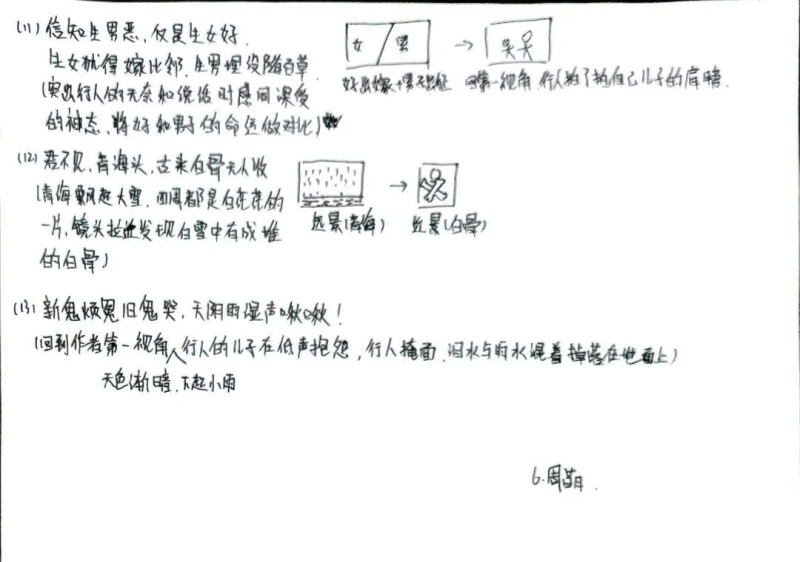 (11) 信知生男恶,反是生女好.
生女犹得嫁比邻,生男埋没随百草.
(突出行人的无奈和统治时感同深受
的神态、将女和男子的命运做对比)
女 男 →
女出嫁+男出征 回第一视角,行人拍了拍自己儿子的肩膀.
(12) 君不见,青海头,古来白骨无人收
(青海飘起大雪,四周都是白茫茫的
一片,镜头拉近发现白雪中有成堆
的白骨)
→
远景(青海) 近景(白骨)
(13) 新鬼烦冤旧鬼哭,天阴雨湿声啾啾!
(回到作者第一视角,行人的儿子在低声抱怨,行人掩面,泪水与雨水混着掉落在地面上)
天色渐暗,下起小雨
6.周萌.